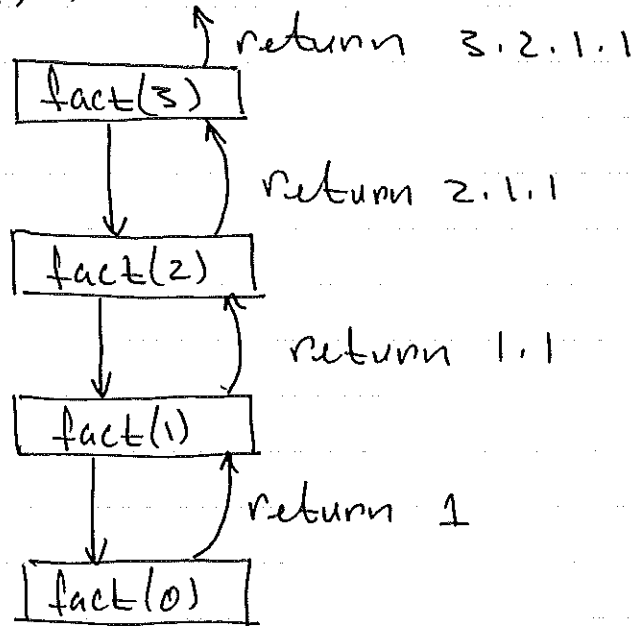 return 3.2.1.1
fact(3)
return 2.1.1
fact(2)
return 1.1
fact(1)
return 1
fact(0)